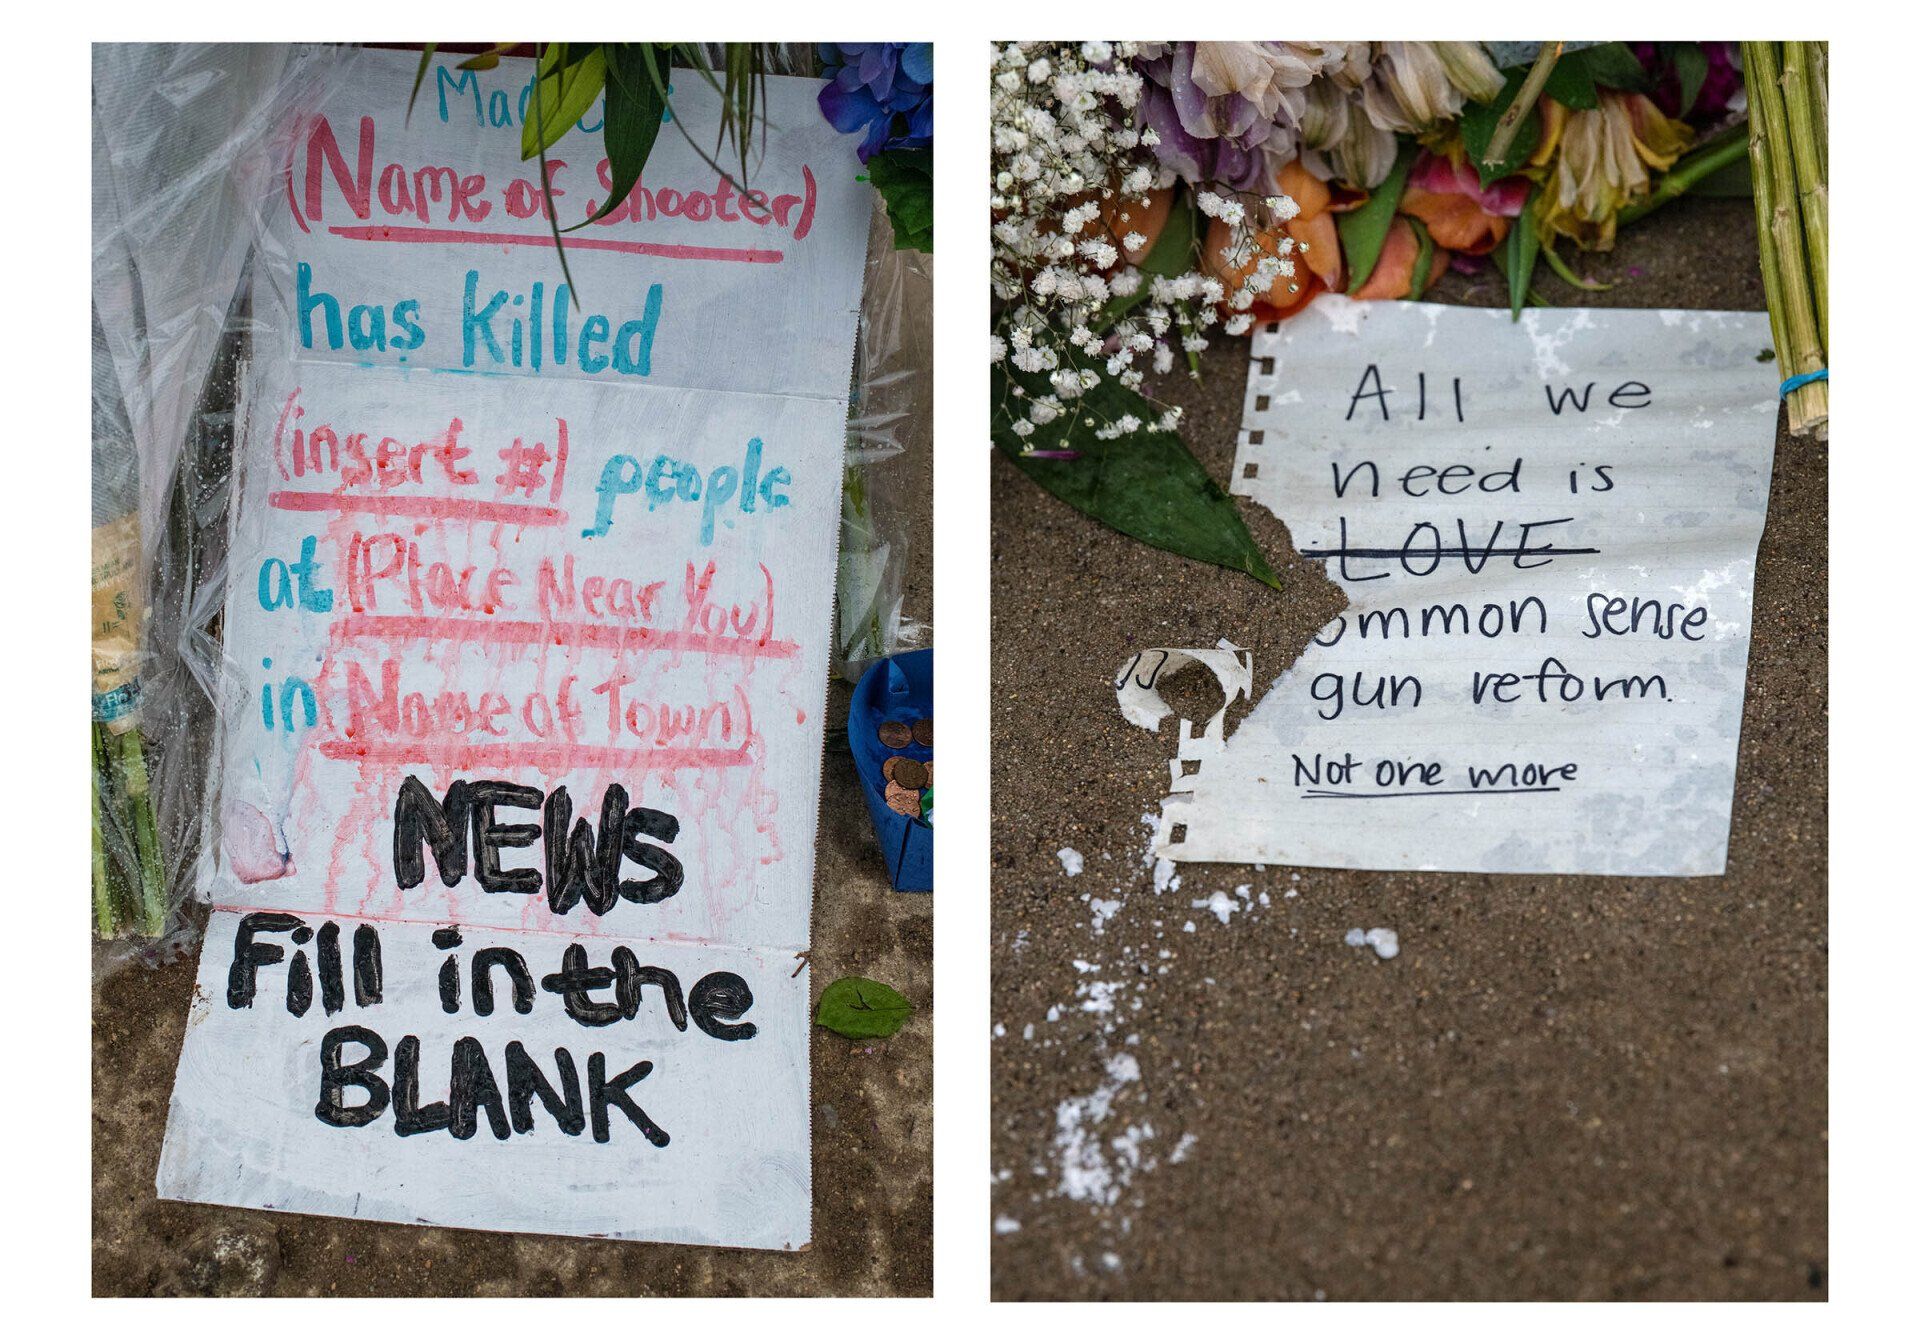 (Name of Shooter)
has killed
(insert #) people
at (Place Near You)
in (Name of Town)
NEWS
Fill in the
BLANK
All we
need is
LOVE
ommon sense
gun reform.
Not one more